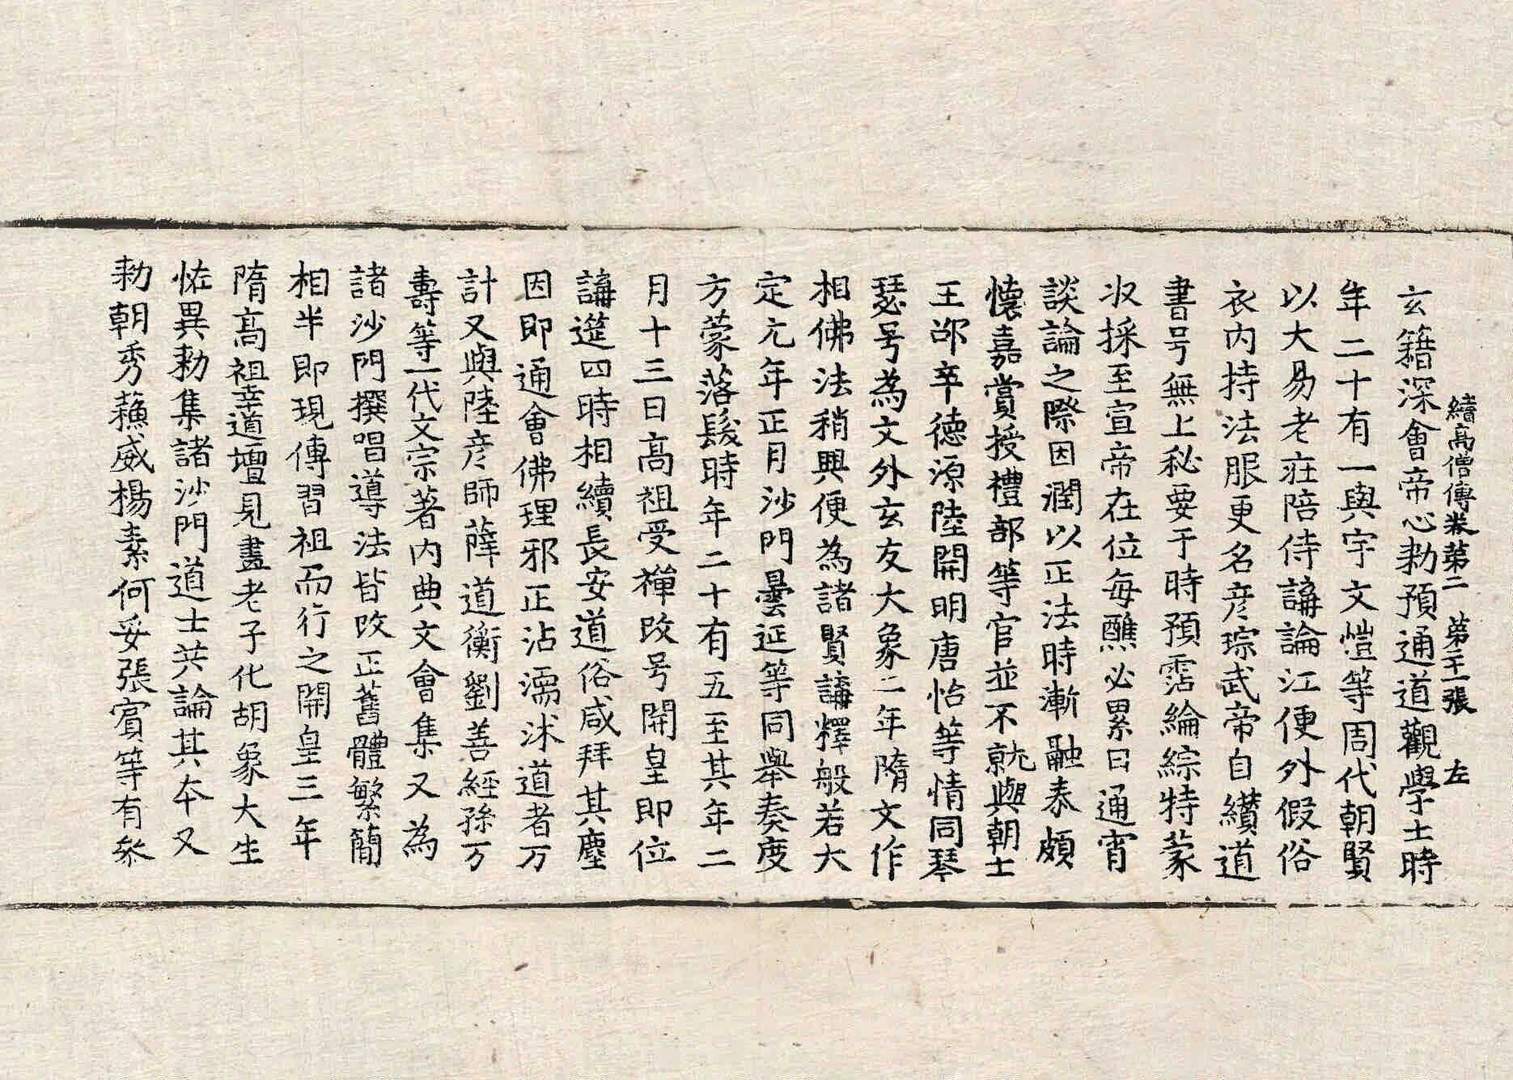 續高僧傳卷第二　第二十一張　左
玄籍深會帝心勑預通道觀學士時
年二十有一與宇文愷等周代朝賢
以大易老莊陪侍講論江便外假俗
衣內持法服更名彥琮武帝自纘道
書号無上秘要于時預霑綸綜特蒙
收採至宣帝在位每醮必累日通宵
談論之際因潤以正法時漸融泰頗
懷嘉賞授禮部等官並不就與朝士
王邵辛德源陸開明唐怡等情同琴
瑟号為文外玄友大象二年隋文作
相佛法稍興便為諸賢講釋般若大
定元年正月沙門曇延等同舉奏度
方蒙落髮時年二十有五至其年二
月十三日高祖受禪改号開皇即位
講筵四時相續長安道俗咸拜其塵
因即通會佛理邪正沾濡沭道者万
計又與陸彥師薛道衡劉善經孫万
壽等一代文宗著內典文會集又為
諸沙門撰唱導法皆改正舊體繁簡
相半即現傳習祖而行之開皇三年
隋高祖幸道壇見畫老子化胡象大生
恠異勑集諸沙門道士共論其本又
勑朝秀蘓威楊素何妥張賓等有參